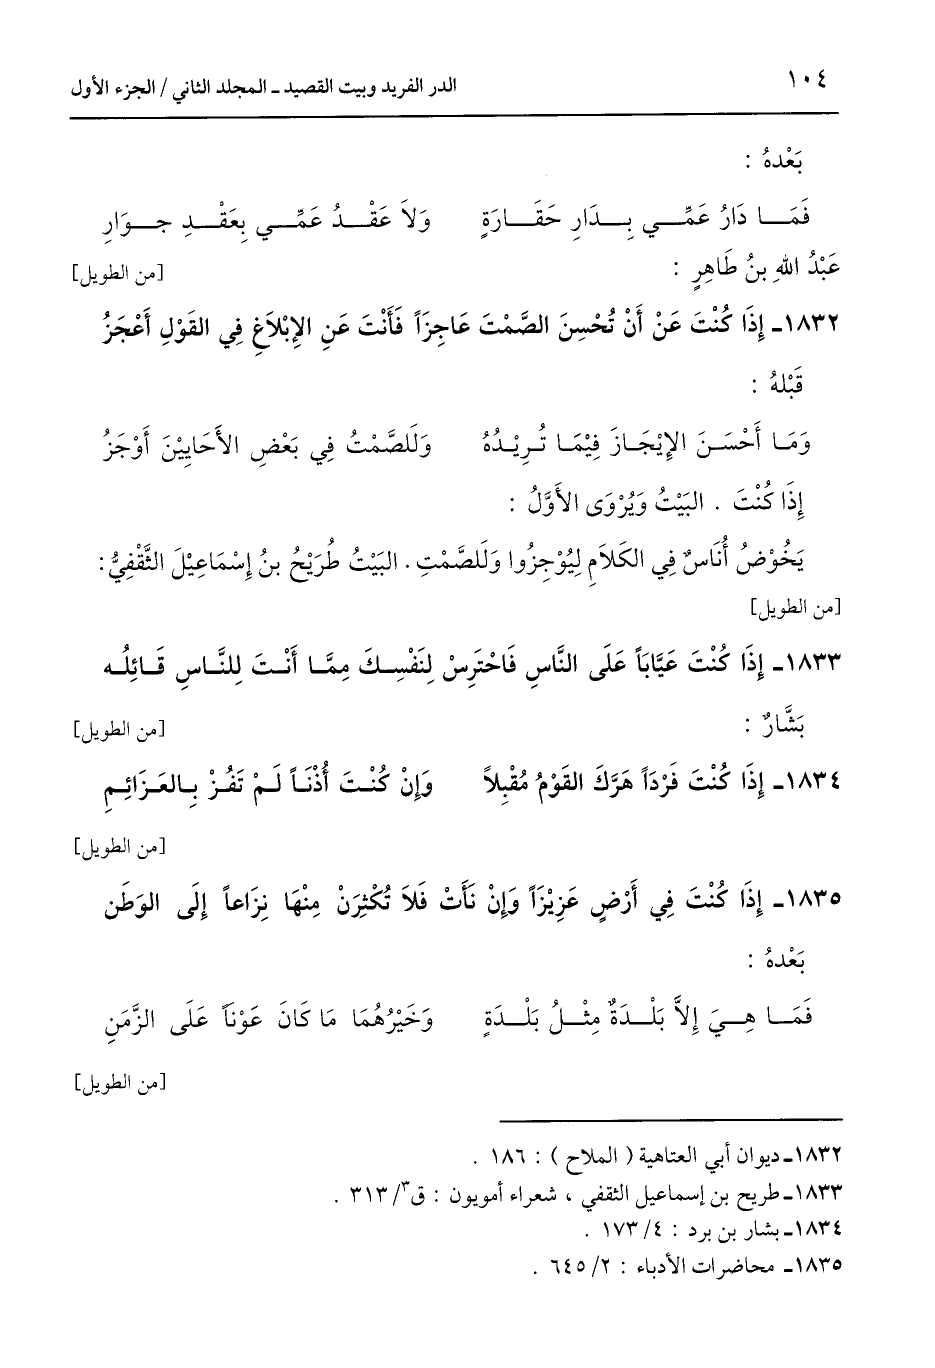 ١٠٤ الدر الفريد وبيت القصيد ـ المجلد الثاني / الجزء الأول
بَعْدهُ :
فَمَـــا دَارُ عَمِّـــي بِـــدَارِ حَقَـــارَةٍ وَلاَ عَقْـــدُ عَمِّـــي بِعَقْـــدِ جـــوَارِ
عَبْدُ اللهِ بنُ طَاهِرٍ : [من الطويل]
١٨٣٢ـ إِذَا كُنْتَ عَنْ أَنْ تُحْسِنَ الصَّمْتَ عَاجِزَاً فَأَنْتَ عَنِ الإِبْلَاغِ فِي القَوْلِ أَعْجَزُ
قَبْلهُ :
وَمَـا أَحْسَـنَ الإِيْجَـازَ فِيْمَـا تُـرِيْـدُهُ وَلَلصَّمْتُ فِي بَعْضِ الأَحَايِيْنَ أَوْجَزُ
إِذَا كُنْتَ . البَيْتُ وَيُرْوَى الأَوَّلُ :
يَخُوْضُ أُنَاسٌ فِي الكَلاَمِ لِيُوْجِزُوا وَلَلصَّمْتِ . البَيْتُ طُرَيْحُ بنُ إِسْمَاعِيْلَ الثَّقْفِيُّ:
[من الطويل]
١٨٣٣ـ إِذَا كُنْتَ عَيَّابَاً عَلَى النَّاسِ فَاحْتَرِسْ لِنَفْسِـكَ مِمَّـا أَنْـتَ لِلنَّـاسِ قَـائِلُـه
بَشَّارٌ : [من الطويل]
١٨٣٤ـ إِذَا كُنْتَ فَرْدَاً هَرَّكَ القَوْمُ مُقْبِلاً وَإِنْ كُنْـتَ أُذْنَـاً لَـمْ تَفُـزْ بِـالعَـزَائِـمِ
[من الطويل]
١٨٣٥ـ إِذَا كُنْتَ فِي أَرْضٍ عَزِيْزَاً وَإِنْ نَأَتْ فَلاَ تُكْثِرَنْ مِنْهَا نِزَاعاً إِلَى الوَطَن
بَعْدهُ :
فَمَـــا هِـــيَ إِلاَّ بَلْـــدَةٌ مِثْـــلُ بَلْـــدَةٍ وَخَيْرُهُمَا مَا كَانَ عَوْنَاً عَلَى الزَّمَنِ
[من الطويل]
١٨٣٢ـ ديوان أبي العتاهية ( الملاح ) : ١٨٦ .
١٨٣٣ـ طريح بن إسماعيل الثقفي ، شعراء أمويون : ق٣/ ٣١٣ .
١٨٣٤ـ بشار بن برد : ٤/ ١٧٣ .
١٨٣٥ـ محاضرات الأدباء : ٢/ ٦٤٥ .